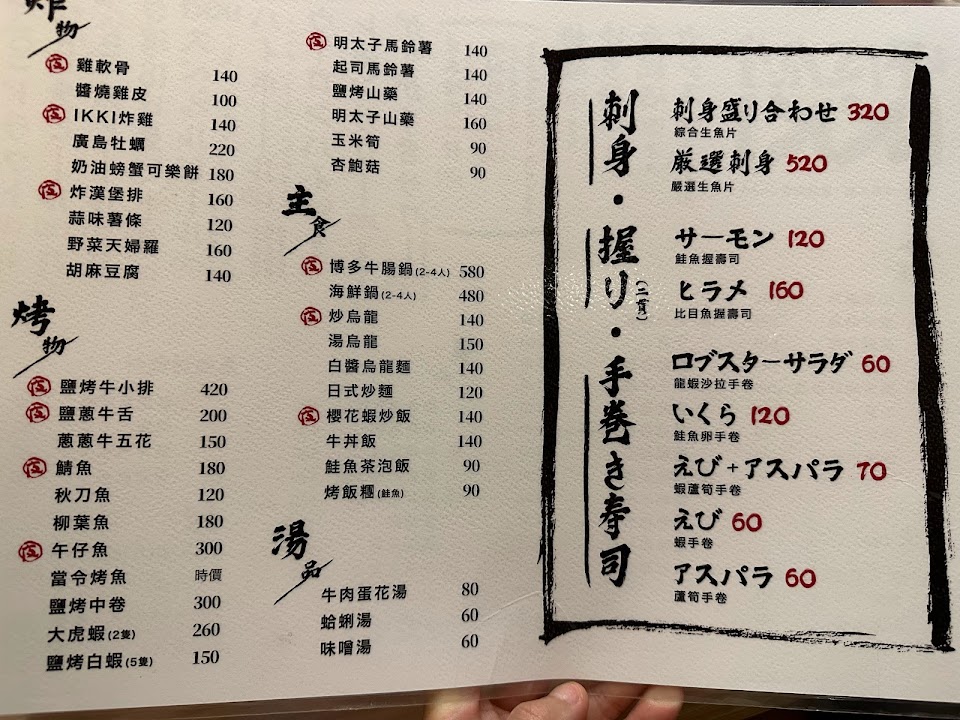 炸物
雞軟骨 140
醬燒雞皮 100
IKKI炸雞 140
廣島牡蠣 220
奶油螃蟹可樂餅 180
炸漢堡排 160
蒜味薯條 120
野菜天婦羅 160
胡麻豆腐 140
烤物
鹽烤牛小排 420
鹽蔥牛舌 200
蔥蔥牛五花 150
鯖魚 180
秋刀魚 120
柳葉魚 180
午仔魚 300
當令烤魚 時價
鹽烤中卷 300
大虎蝦(2隻) 260
鹽烤白蝦(5隻) 150
明太子馬鈴薯 140
起司馬鈴薯 140
鹽烤山藥 140
明太子山藥 160
玉米筍 90
杏鮑菇 90
主食
博多牛腸鍋(2-4人) 580
海鮮鍋(2-4人) 480
炒烏龍 140
湯烏龍 150
白醬烏龍麵 140
日式炒麵 120
櫻花蝦炒飯 140
牛丼飯 140
鮭魚茶泡飯 90
烤飯糰(鮭魚) 90
湯品
牛肉蛋花湯 80
蛤蜊湯 60
味噌湯 60
刺身・握り(二貫)・手巻き寿司
刺身盛り合わせ 320
綜合生魚片
厳選刺身 520
嚴選生魚片
サーモン 120
鮭魚握壽司
ヒラメ 160
比目魚握壽司
ロブスターサラダ 60
龍蝦沙拉手卷
いくら 120
鮭魚卵手卷
えび+アスパラ 70
蝦蘆筍手卷
えび 60
蝦手卷
アスパラ 60
蘆筍手卷